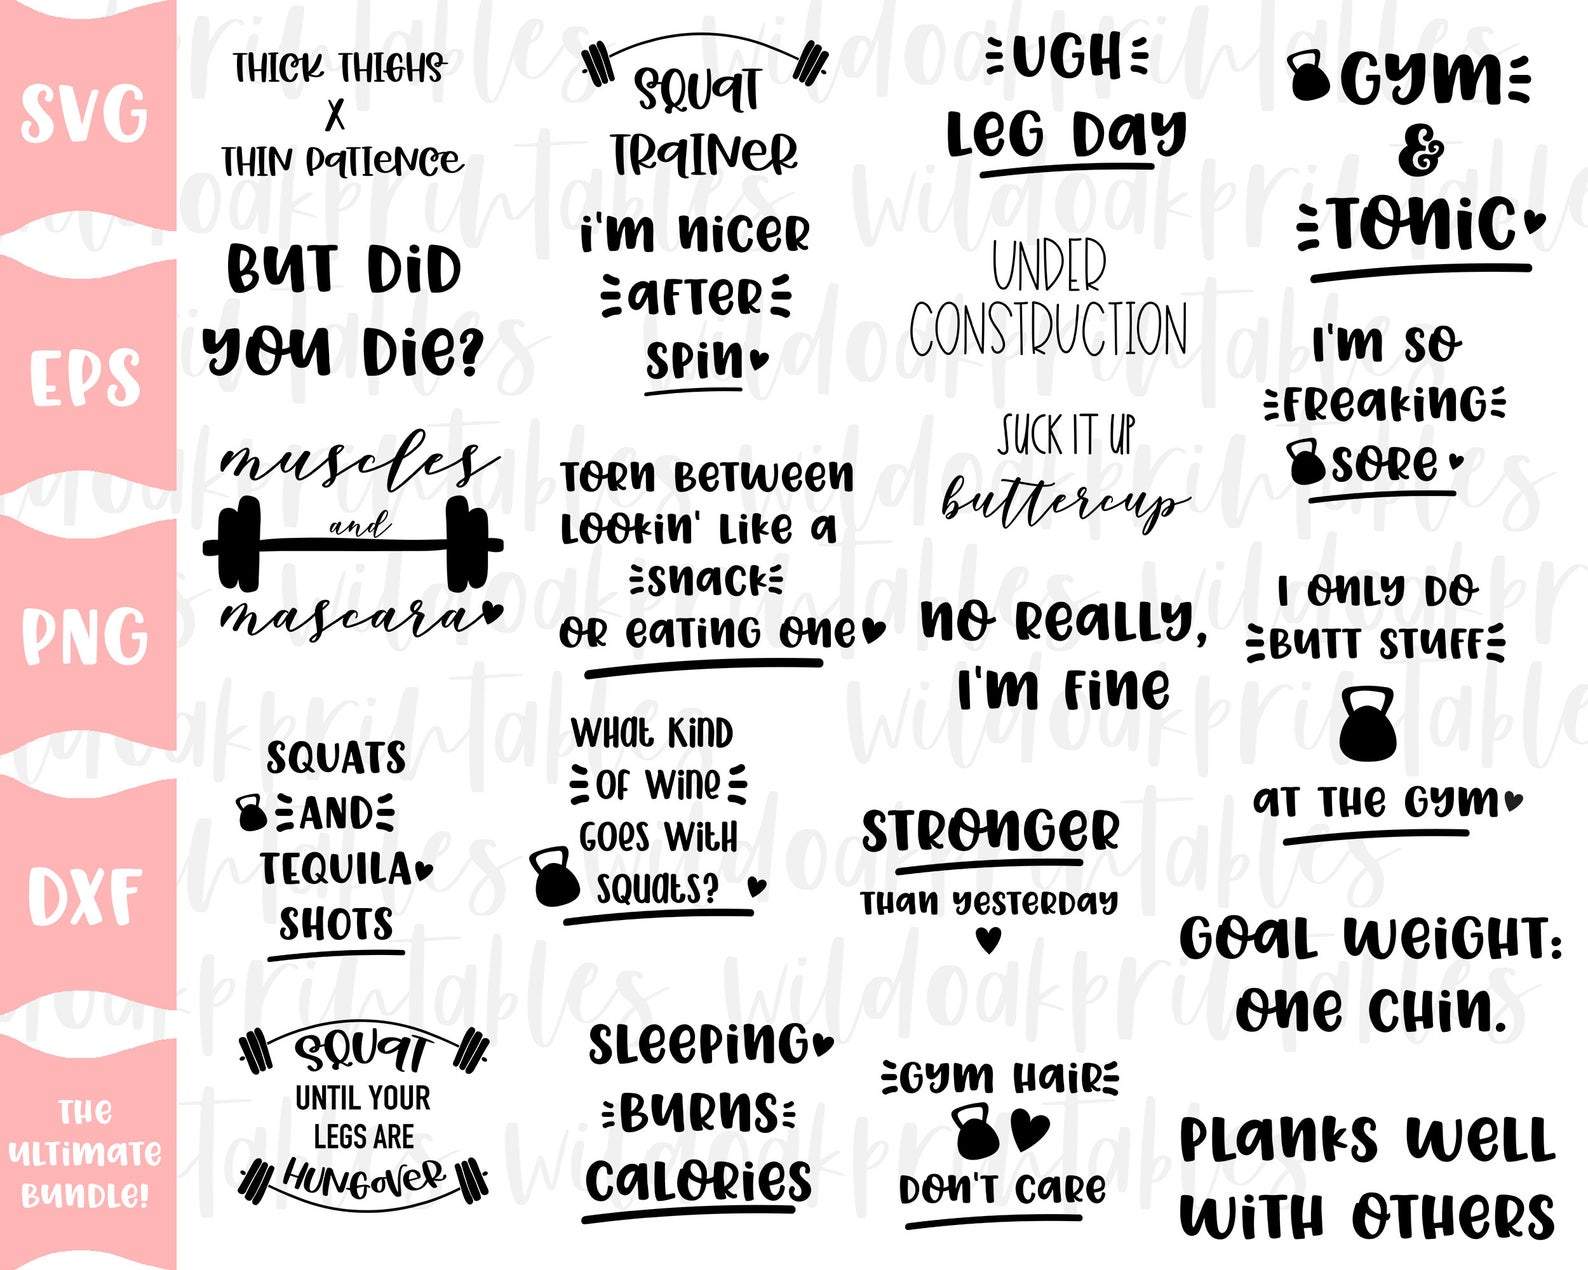 SVG
EPS
PNG
DXF
THE
ULTIMATE
BUNDLE!
THICK THIGHS
X
THIN PATIENCE
BUT DID
YOU DIE?
muscles
and
mascara
SQUATS
AND
TEQUILA
SHOTS
SQUAT
UNTIL YOUR
LEGS ARE
HUNGOVER
SQUAT
TRAINER
i'm nicer
AFTER
SPIN
TORN BETWEEN
LOOKIN' LIKE A
SNACK
OR EATING ONE
WHAT KIND
OF WINE
GOES WITH
SQUATS?
SLEEPING
BURNS
CALORIES
UGH
LEG DAY
UNDER
CONSTRUCTION
SUCK IT UP
buttercup
NO REALLY,
I'M FINE
STRONGER
THAN YESTERDAY
GYM HAIR
DON'T CARE
GYM
&
TONIC
I'M SO
FREAKING
SORE
I ONLY DO
BUTT STUFF
AT THE GYM
GOAL WEIGHT:
ONE CHIN.
PLANKS WELL
WITH OTHERS
wildoakprintables